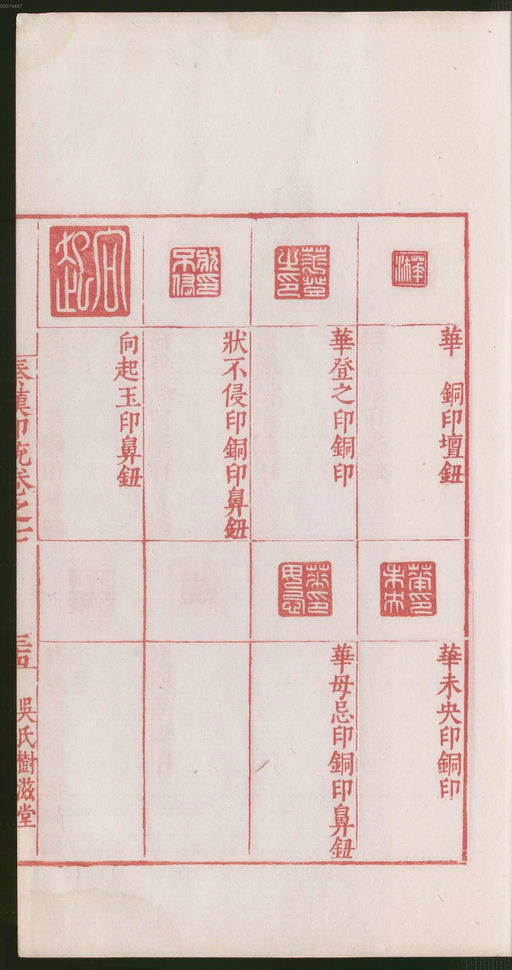 華　銅印壇鈕
華登之印銅印
狀不侵印銅印鼻鈕
向起玉印鼻鈕
華未央印銅印
華毋忌印銅印鼻鈕
吳氏樹滋堂
00073487